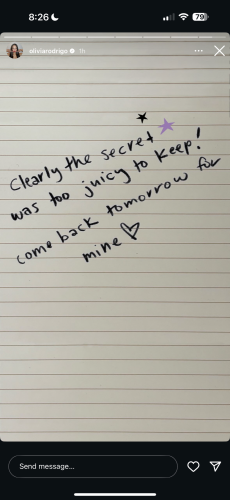 8:26
79
oliviarodrigo 1h
Clearly the secret
was too juicy to keep!
come back tomorrow for
mine
Send message...